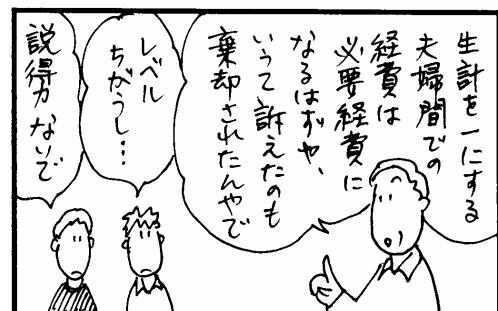 生計を一にする
夫婦間での
経費は
必要経費に
なるはずや、
いうて訴えたのも
棄却されたんやで
レベル
ちがうし…
説得力ないで